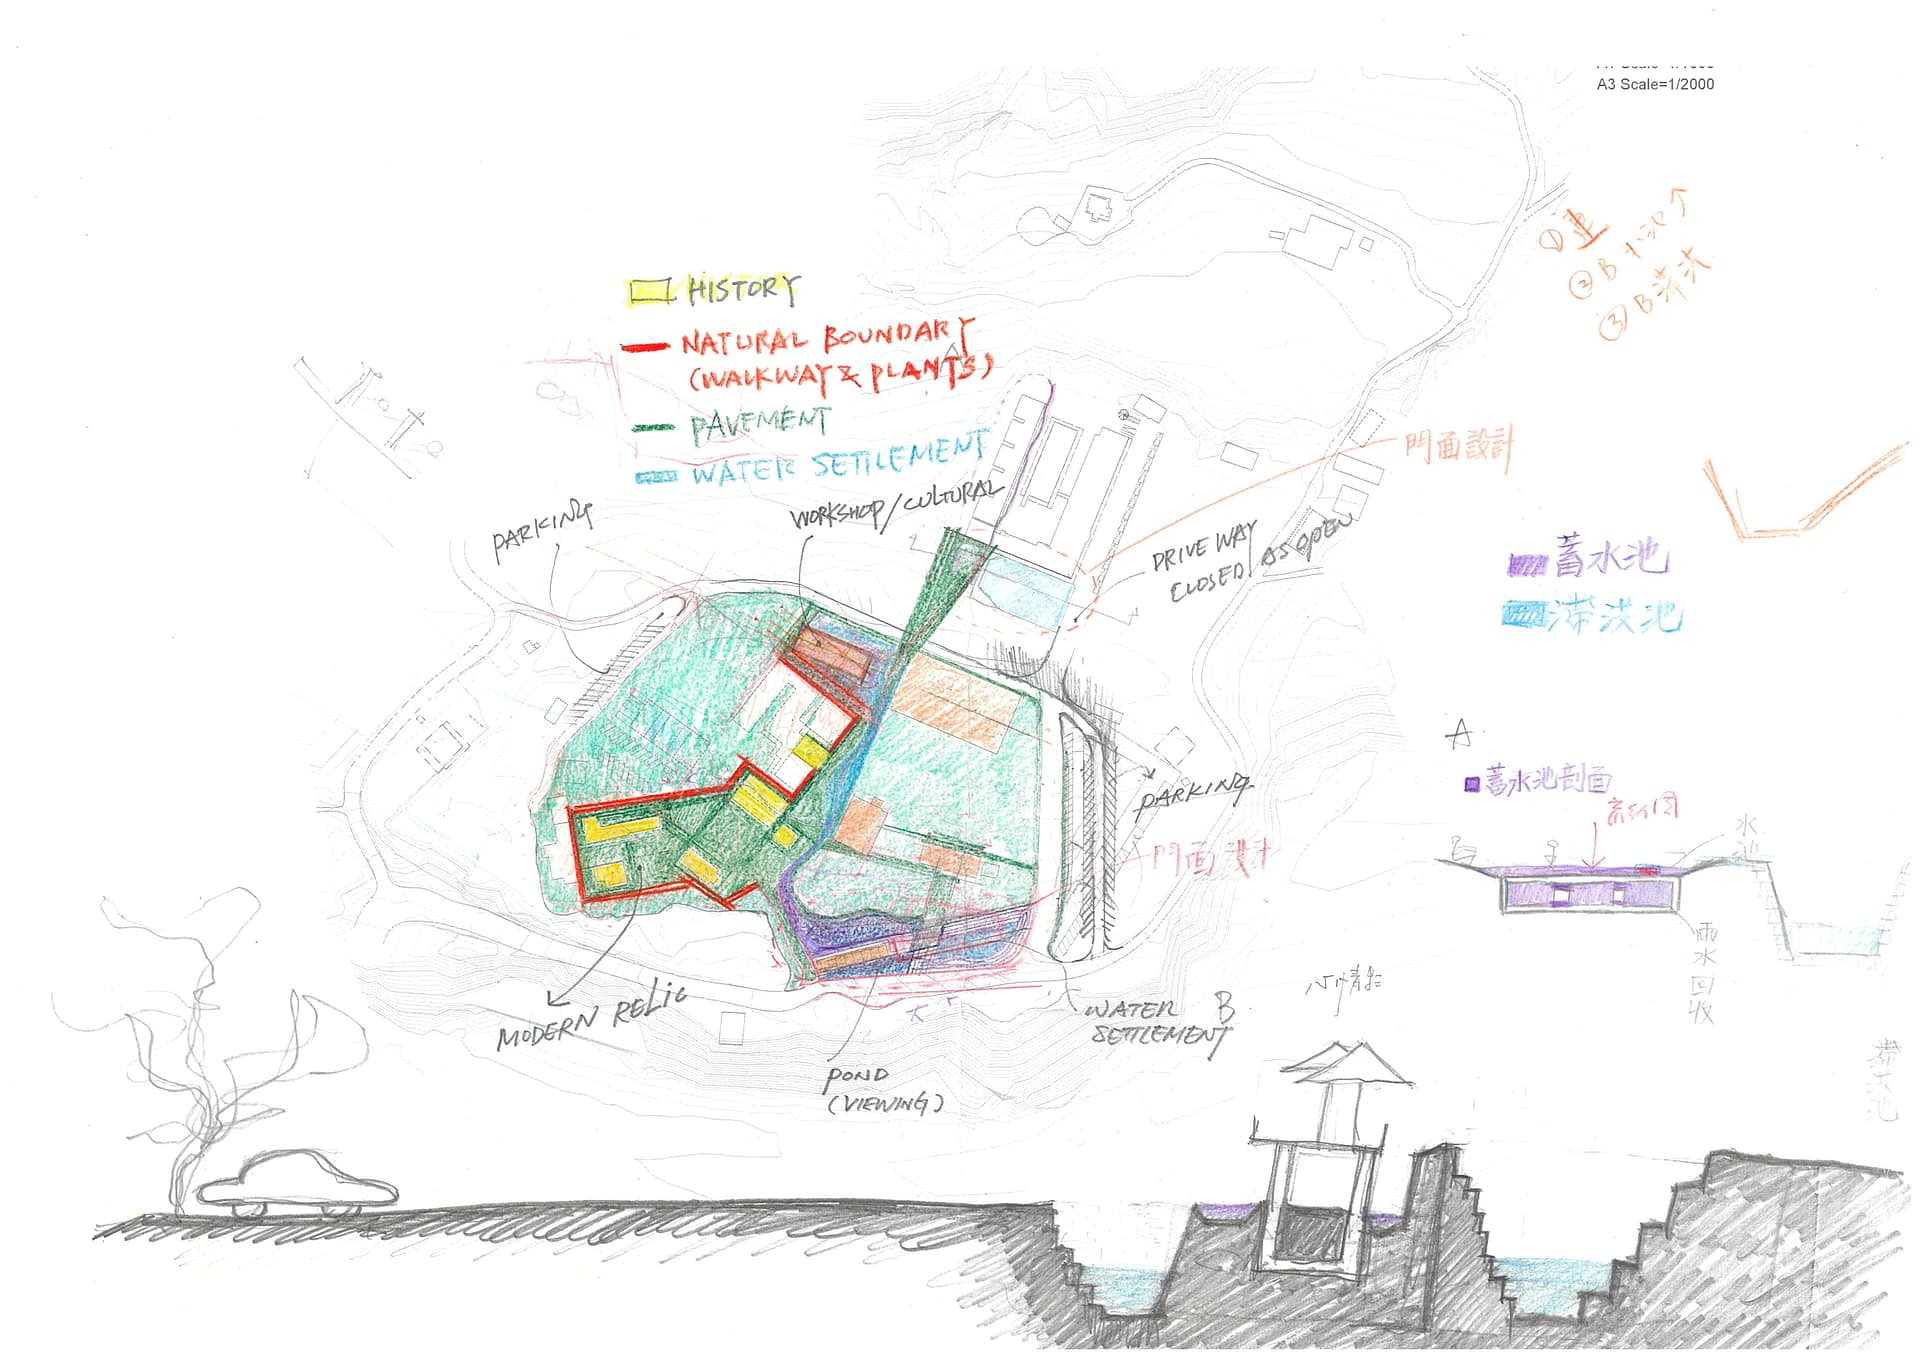 A3 Scale=1/2000
① 建
② B 水池↑
③ B 滯洪
HISTORY
NATURAL BOUNDARY
(WALKWAY & PLANTS)
PAVEMENT
WATER SETTLEMENT
PARKING
WORKSHOP/CULTURAL
門面設計
DRIVE WAY
CLOSED/AS OPEN
蓄水池
滯洪池
A
蓄水池剖面
水池
PARKING
門面設計
雨水回收
MODERN RELIC
WATER B
SETTLEMENT
POND
(VIEWING)
滯洪池